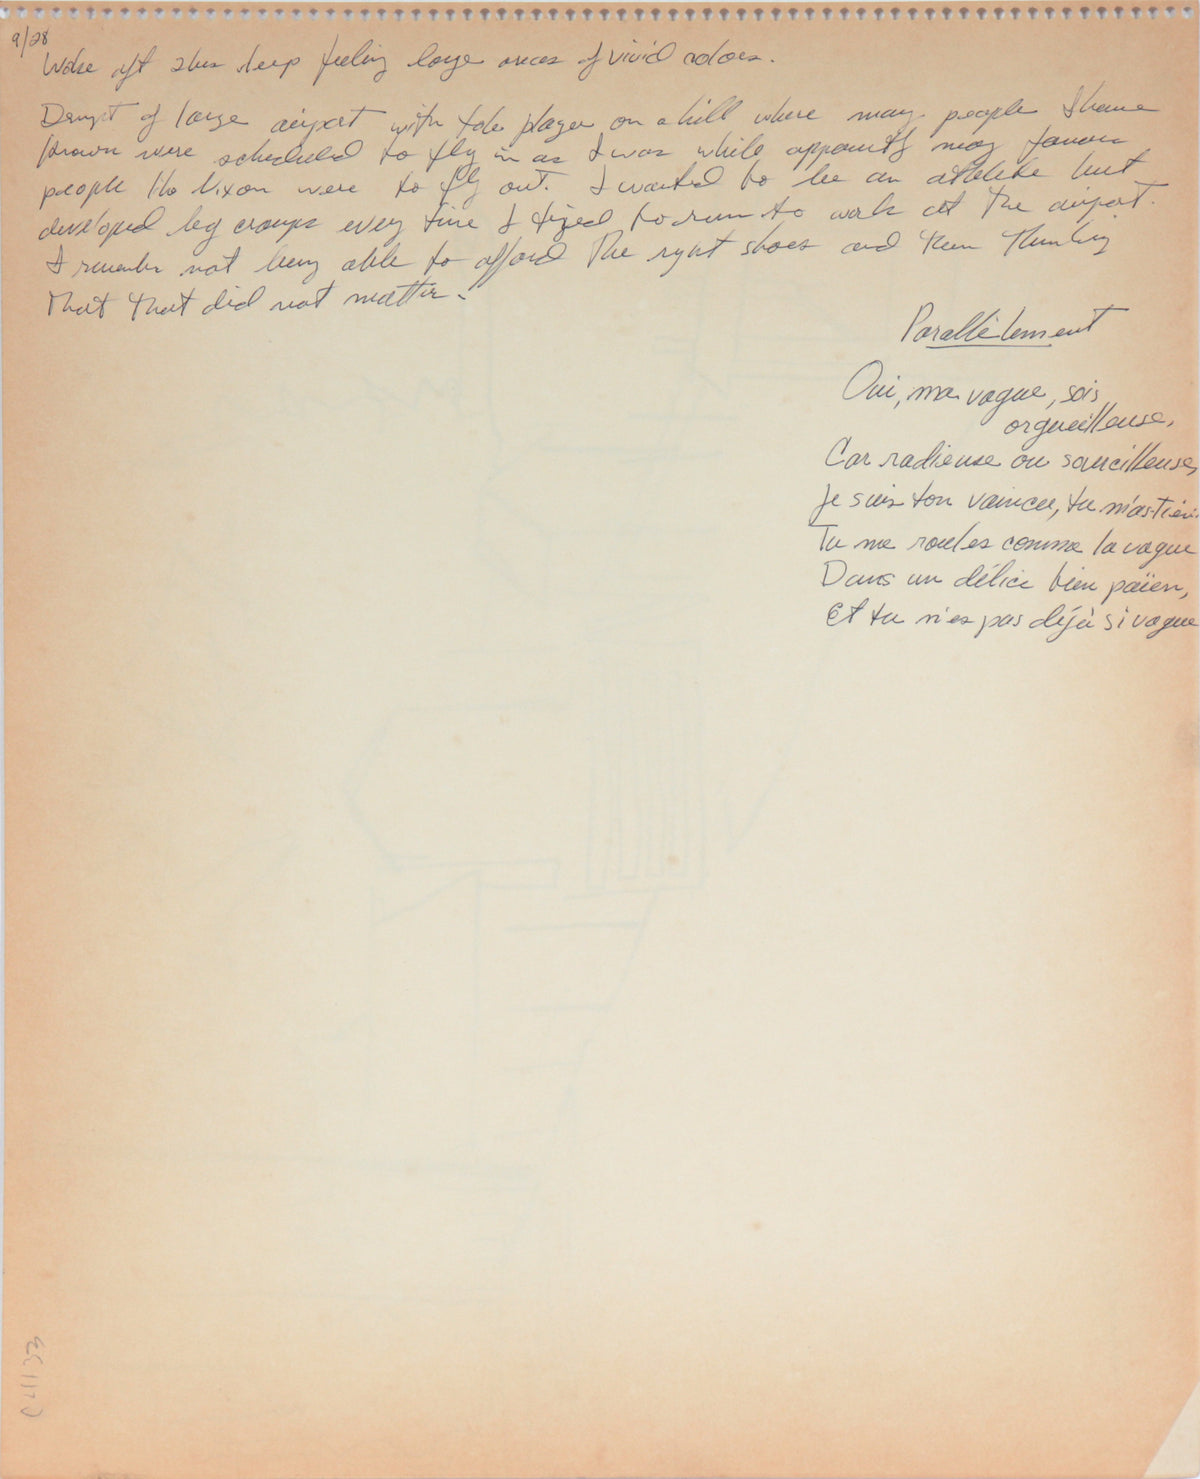 9/28
Woke aft deep feeling large areas of vivid colors.
Dreamt of large airport with player on a hill where many people I have
known were scheduled to fly in as I was while apparently many famous
people like Nixon were to fly out. I wanted to be an athlete but
developed leg cramps every time I tried to run to work at the airport.
I remember not being able to afford the right shoes and then thinking
that that did not matter.
Parallèlement
Oui, ma vague, sois
orgueilleuse,
Car radieuse ou sourcilleuse,
Je suis ton vaincu, tu m'as tien.
Tu me roules comme la vague
Dans un délice bien païen,
Et tu n'es pas déjà si vague